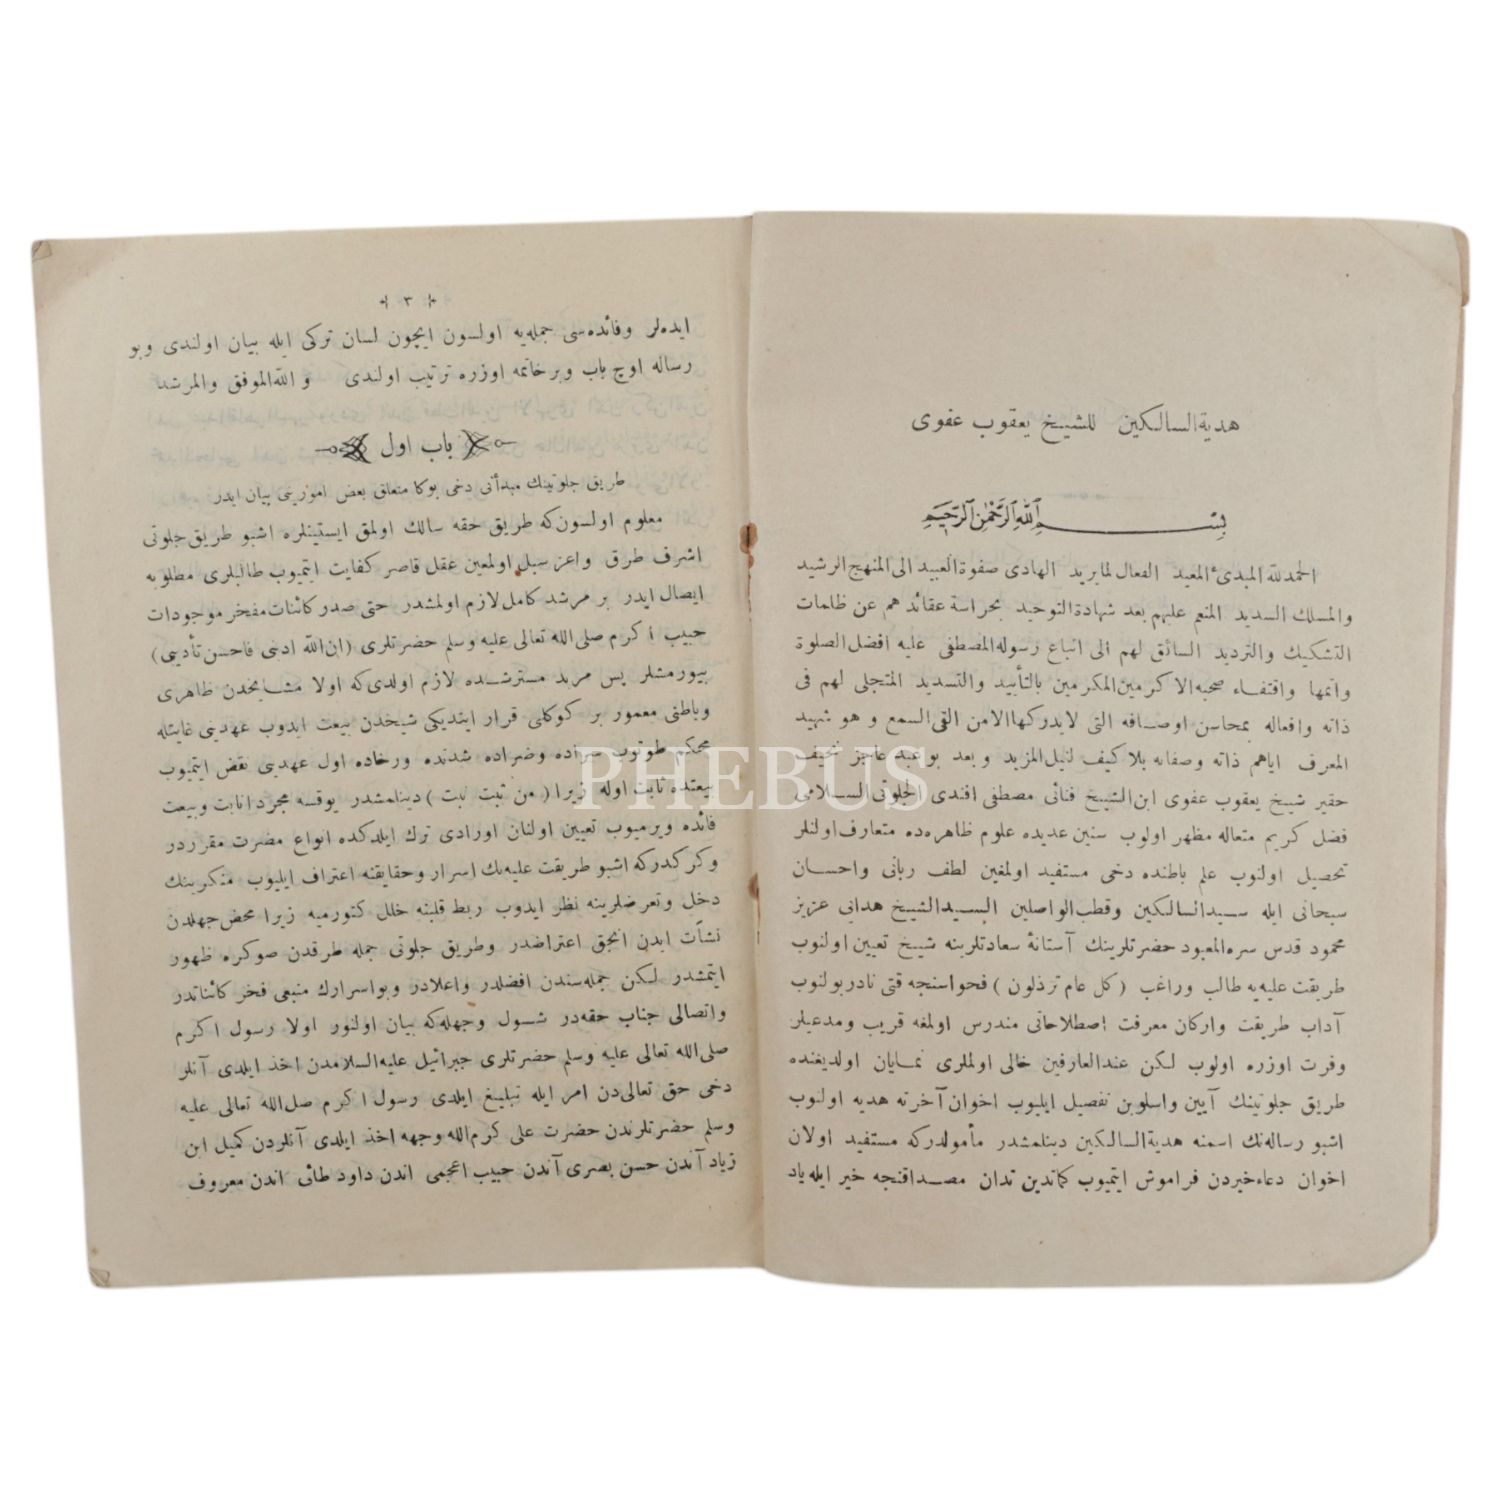 هدیة السالکین للشیخ یعقوب عفوی
بسم الله الرحمن الرحیم
الحمدلله المبدیٔ المعید الفعال لما یرید الهادی صفوة العبید الی المنهج الرشید
والمسلك السدید المنعم علیهم بعد شهادة التوحید بحراسة عقائد هم عن ظلمات
التشکیك والتردید السائق لهم الی اتباع رسوله المصطفی علیه افضل الصلوة
واتمها واقتفاء صحبه الاکرمین المکرمین بالتأیید والتسدید المتجلی لهم فی
ذاته وافعاله بمحاسن اوصافه التی لایدرکها الامن القی السمع و هو شهید
المعرف ایاهم ذاته وصفاته بلا کیف لنیل المزید و بعد بو عبد عاجز نحیف
حقیر شیخ یعقوب عفوی ابن الشیخ فنائی مصطفی افندی الجلوتی السلامی
فضل کریم متعاله مظهر اولوب سنین عدیده علوم ظاهره‌ده متعارف اولنلر
تحصیل اولنوب علم باطنده دخی مستفید اولمغین لطف ربانی واحسان
سبحانی ایله سید السالکین وقطب الواصلین السید الشیخ هدایی عزیز
محمود قدس سره المعبود حضرتلرینك آستانهٔ سعادتلرینه شیخ تعیین اولنوب
طریقت علیه‌یه طالب وراغب (کل عام ترذلون) فحواسنجه قتی نادر بولنوب
آداب طریقت وارکان معرفت اصطلاحاتی مندرس اولمغه قریب ومدعیلر
وفرت اوزره اولوب لکن عند العارفین خالی اولملری نمایان اولدیغنده
طریق جلوتینك آیین واسلوبن تفصیل ایلیوب اخوان آخرته هدیه اولنوب
اشبو رساله‌نك اسمنه هدیة السالکین دینلمشدر مأمولدرکه مستفید اولان
اخوان دعاء خیردن فراموش ایتمیوب کماتدین تدان مصداقنجه خیر ایله یاد
٣
ایده‌لر وفائده‌سی جمله‌یه اولسون ایچون لسان ترکی ایله بیان اولندی وبو
رساله اوچ باب وبر خاتمه اوزره ترتیب اولندی و الله الموفق والمرشد
باب اول
طریق جلوتینك مبدأنی دخی بوکا متعلق بعض امورینی بیان ایدر
معلوم اولسون‌که طریق حقه سالك اولمق ایستینلره اشبو طریق جلوتی
اشرف طرق واعز سبل اولمغین عقل قاصر کفایت ایتمیوب طالبلری مطلوبه
ایصال ایدر بر مرشد کامل لازم اولمشدر حتی صدر کائنات مفخر موجودات
حبیب اکرم صلی الله تعالی علیه وسلم حضرتلری (ان الله ادبنی فاحسن تأدیبی)
بیورمشلر پس مرید مسترشده لازم اولدی‌که اولا مشایخدن ظاهری
وباطنی معمور بر کوکلی قرار ایتدیکی شیخدن بیعت ایدوب عهدینی غایتله
محکم طوتوب سراده وضراده شدنده ورخاده اول عهدینی نقض ایتمیوب
بیعتده ثابت اوله زیرا (من ثبت نبت) دینلمشدر یوقسه مجرد انابت وبیعت
فائده ویرمیوب تعیین اولنان اورادی ترك ایلدکده انواع مضرت مقرردر
وکرکدرکه اشبو طریقت علیه‌نك اسرار وحقایقنه اعتراف ایلیوب منکرینك
دخل وتعرضلرینه نظر ایدوب ربط قلبنه خلل کتورمیه زیرا محض جهلدن
نشأت ایدن انجق اعتراضدر وطریق جلوتی جمله طرقدن صوکره ظهور
ایتمشدر لکن جمله‌سندن افضلدر واعلادر وبو اسرارك منبعی فخر کائناتدر
واتصالی جناب حقه‌در شول وجهله‌که بیان اولنور اولا رسول اکرم
صلی الله تعالی علیه وسلم حضرتلری جبرائیل علیه السلامدن اخذ ایلدی آنلر
دخی حق تعالی‌دن امر ایله تبلیغ ایلدی رسول اکرم صلی الله تعالی علیه
وسلم حضرتلرندن حضرت علی کرم الله وجهه اخذ ایلدی آنلردن کمیل ابن
زیاد آندن حسن بصری آندن حبیب اعجمی اندن داود طائی اندن معروف